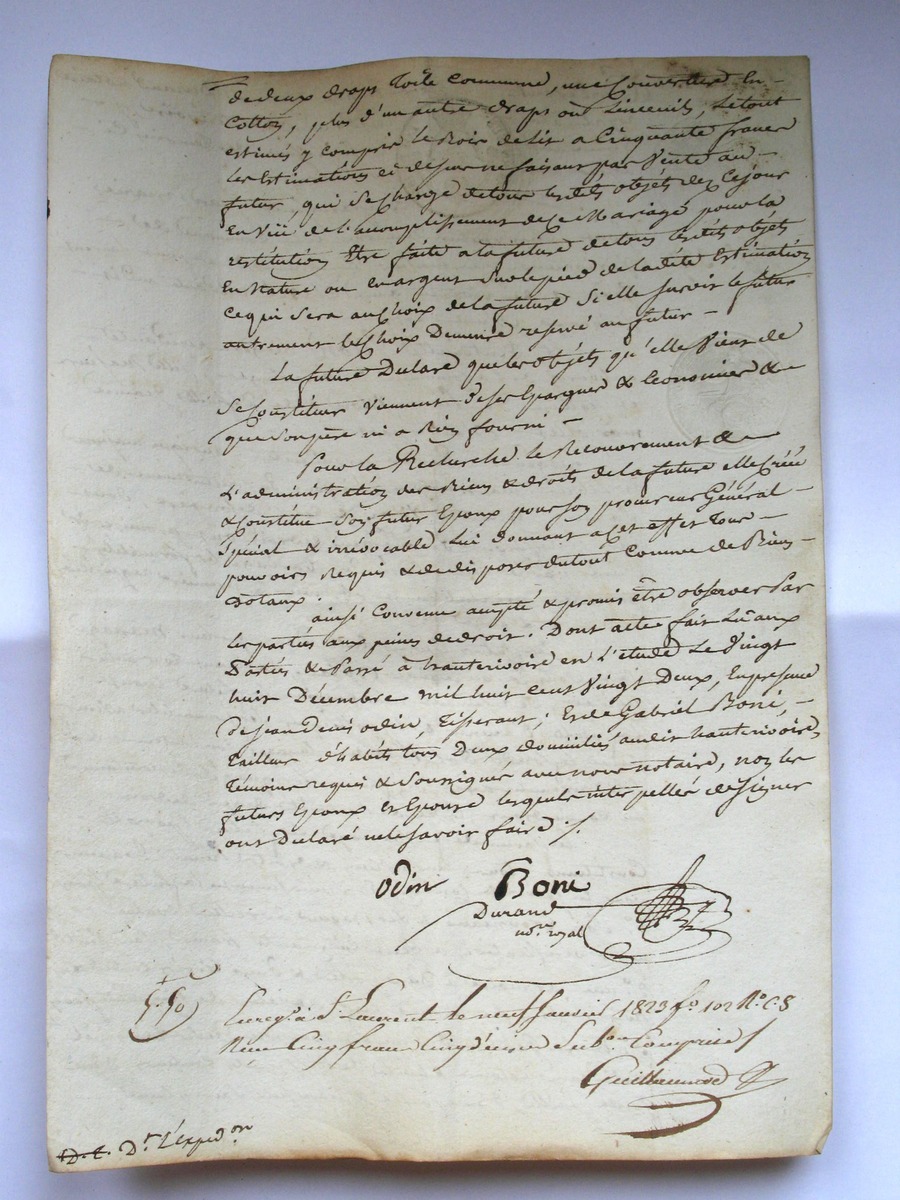 de deux draps Toile Commune, une Couverture En -
Cotton, plus d'un autre draps ou Linceuils, Le tout
estimés y compris le Bois de lit a Cinquante francs
Les Estimations ci dessus ne faisant pas Vente au -
futur qui Se Charge de tous lesdits objets dez Ce jour
En Vüe de l'acomplissement de ce Mariage pour la
restitution Etre faite a la future de tous lesdits objets
En Nature ou en argent Sur le pied de la dite Estimation
Ce qui Sera au Choix de la future Si elle Survit le futur
autrement le Choix Demeure reservé au futur -
La future Declare que les objets qu'elle Vient de
Se Constituer Viennent de ses Epargnes & Economies & -
que Son père ni a Rien fourni -
Pour la Recherche le Recouvrement & -
L'administration des Biens & droits de la future elle Créée
& Constitue Son futur Epoux pour Son procureur Général -
Spécial & irrévocable Lui donnant a cet effet Tous -
pouvoirs Requis & de disposer du tout Comme de Biens -
Dotaux.
ainsi Convenu accepté & promis être observer Par
les parties aux peines de droit. Dont acte fait Lû aux
Parties & Passé à hauterivoire en L'étude Le Vingt
huit Décembre mil huit Cent Vingt Deux, En presence
de jean Denis odin, Tisserant; Et de Gabriel Boni, -
Tailleur d'habits tous Deux domiciliés audit hauterivoire,
Témoins requis & Soussignés avec nous notaire, non les
futurs Epoux et Epouse lesquels interpellés de Signer
ont Declaré ne le Savoir faire ./.
odin Boni
Durand
nore royal
5.50
Enregé. à St Laurent le neuf Janvier 1823 fo 102 No. C. 8
Reçu Cinq francs Cinq décimes Subon Comprise
Guillaumod
D. t. Dt L'expedon